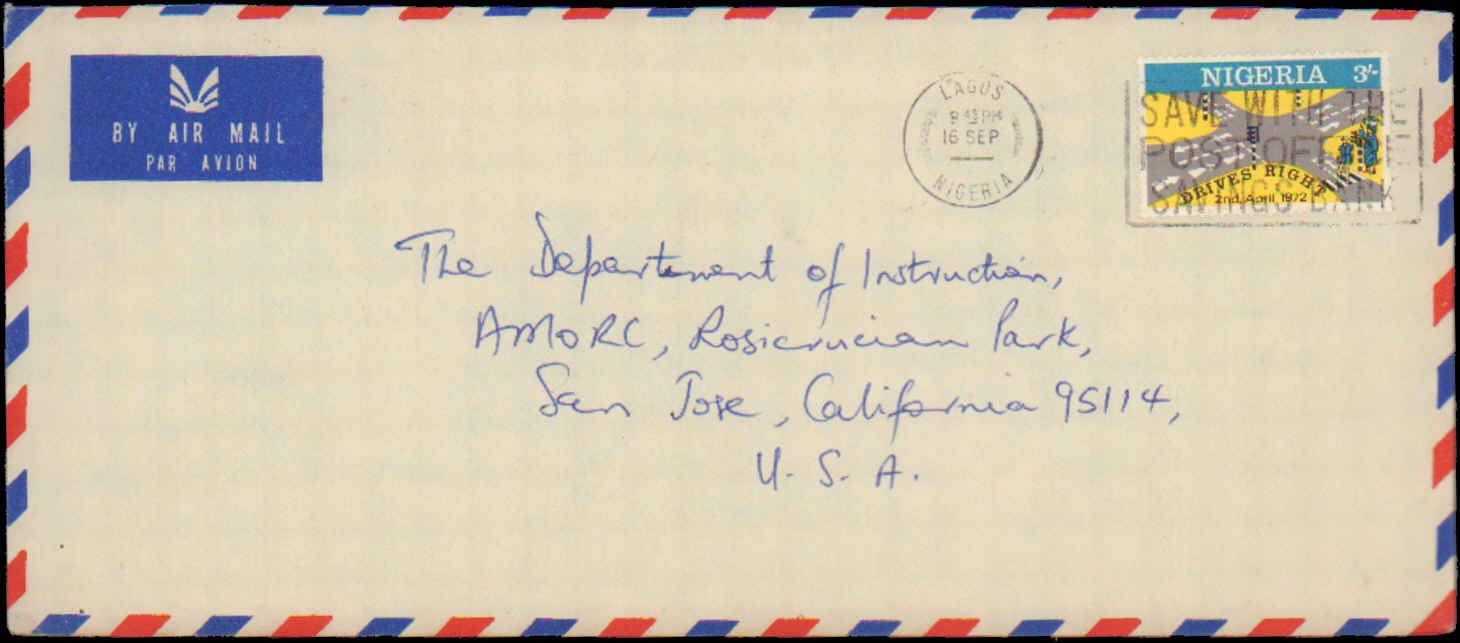 BY AIR MAIL
PAR AVION
LAGOS
16 SEP
NIGERIA
NIGERIA 3/-
SAVE WITH THE
POST OFFICE
SAVINGS BANK
DRIVES RIGHT
2nd. April 1972
The Department of Instruction,
AMORC, Rosicrucian Park,
San Jose, California 95114,
U. S. A.